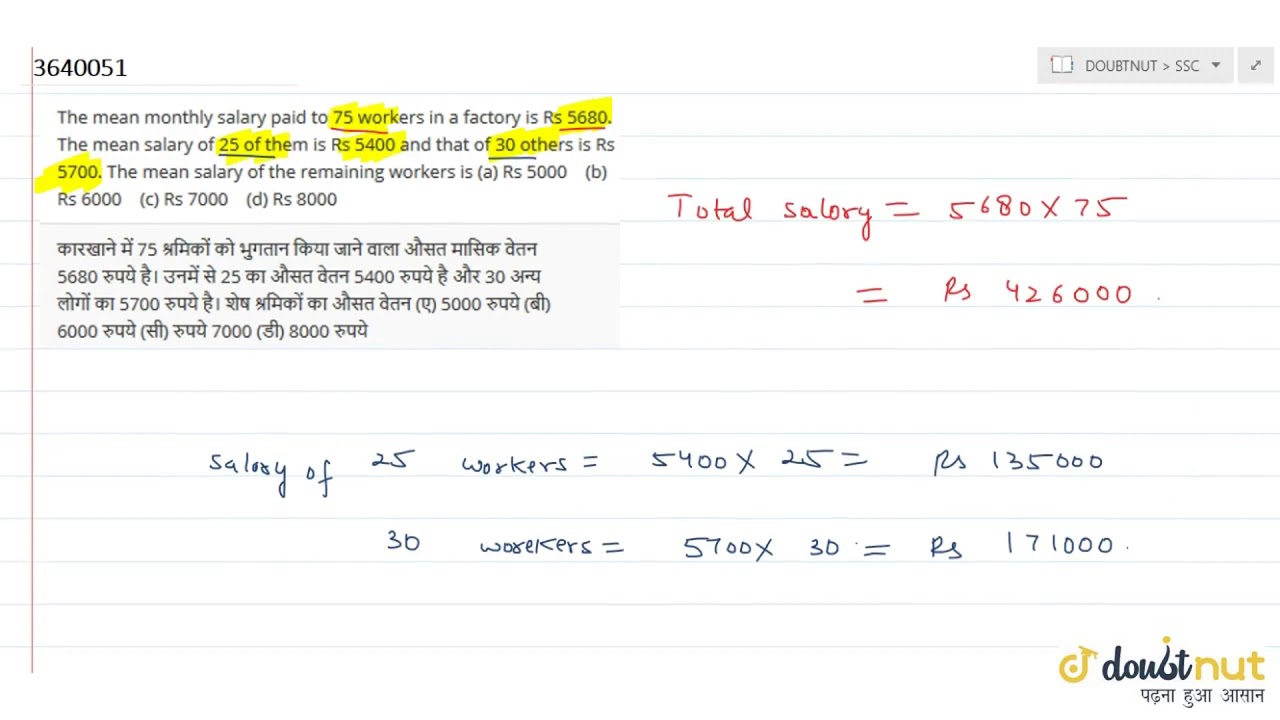 3640051
DOUBTNUT > SSC
The mean monthly salary paid to 75 workers in a factory is Rs 5680.
The mean salary of 25 of them is Rs 5400 and that of 30 others is Rs
5700. The mean salary of the remaining workers is (a) Rs 5000 (b)
Rs 6000 (c) Rs 7000 (d) Rs 8000
कारखाने में 75 श्रमिकों को भुगतान किया जाने वाला औसत मासिक वेतन
5680 रुपये है। उनमें से 25 का औसत वेतन 5400 रुपये है और 30 अन्य
लोगों का 5700 रुपये है। शेष श्रमिकों का औसत वेतन (ए) 5000 रुपये (बी)
6000 रुपये (सी) रुपये 7000 (डी) 8000 रुपये
Total salory = 5680 X 75
= Rs 426000
salory of 25 workers = 5400 X 25 = Rs 135000
30 worekers = 5700 X 30 = Rs 171000
doubtnut
पढ़ना हुआ आसान